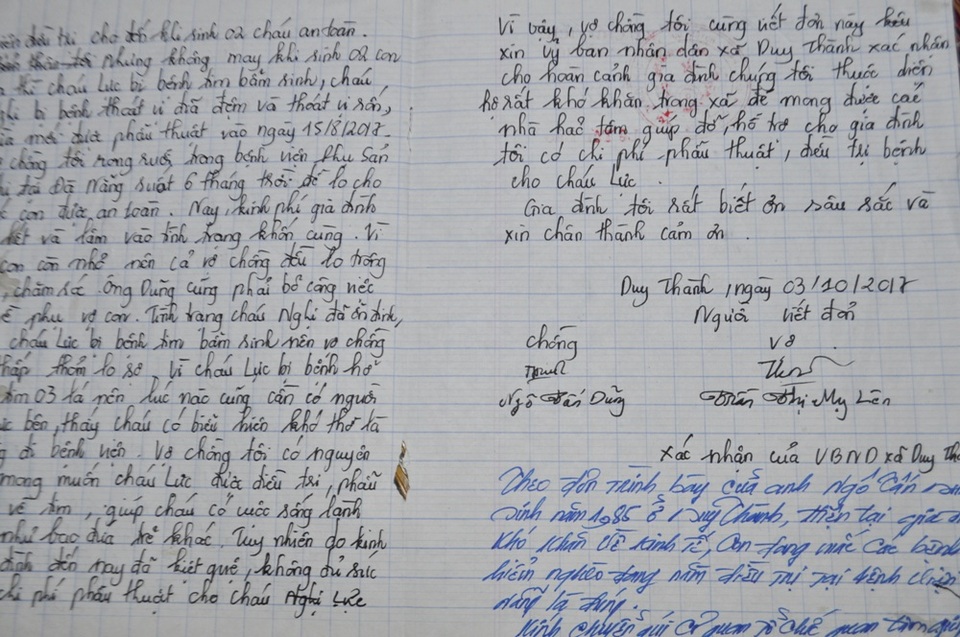 điều trị cho đến khi sinh 02 cháu an toàn.
nhưng không may khi sinh 02 con
thì cháu Lực bị bệnh tim bẩm sinh, cháu
bị bệnh thoát vị dạ đệm và thoát vị rốn,
mới được phẫu thuật vào ngày 15/8/2017.
chồng tôi rong ruổi trong bệnh viện Phụ Sản
tại Đà Nẵng suốt 6 tháng trời để lo cho
con được an toàn. Nay, kinh phí gia đình
kiệt và lâm vào tình trạng khốn cùng. Vì
con còn nhỏ nên cả vợ chồng đều lo trông
, chăm sóc. Ông Dũng cũng phải bỏ công việc
phụ vợ con. Tình trạng cháu Nghị đã ổn định,
cháu Lực bị bệnh tim bẩm sinh nên vợ chồng
thấp thỏm lo sợ. Vì cháu Lực bị bệnh hở
tim 03 lá nên lúc nào cũng cần có người
bên, thấy cháu có biểu hiện khó thở là
đi bệnh viện. Vợ chồng tôi có nguyện
mong muốn cháu Lực được điều trị, phẫu
về tim, giúp cháu có cuộc sống lành
như bao đứa trẻ khác. Tuy nhiên do kinh
đình đến nay đã kiệt quệ, không đủ sức
chi phí phẫu thuật cho cháu Nghị Lực
Vì vậy, vợ chồng tôi cùng viết đơn này kêu
xin Uỷ ban nhân dân xã Duy Thành xác nhận
cho hoàn cảnh gia đình chúng tôi thuộc diện
hộ rất khó khăn trong xã để mong được các
nhà hảo tâm giúp đỡ, hỗ trợ cho gia đình
tôi có chi phí phẫu thuật, điều trị bệnh
cho cháu Lực.
Gia đình tôi rất biết ơn sâu sắc và
xin chân thành cảm ơn.
Duy Thành, ngày 03/10/2017
Người viết đơn
Chồng Vợ
Ngô Tấn Dũng Trần Thị Mỵ Lên
Xác nhận của UBND xã Duy Thà
Theo đơn trình bày của anh Ngô Tấn
sinh năm 1985 ở Duy Thành, hiện tại gia đ
khó khăn về kinh tế, con đang mắc các bệnh
hiểm nghèo đang nằm điều trị tại bệnh viện
nẵng là đúng.
Kính chuyển gửi cơ quan tổ chức quan tâm giú